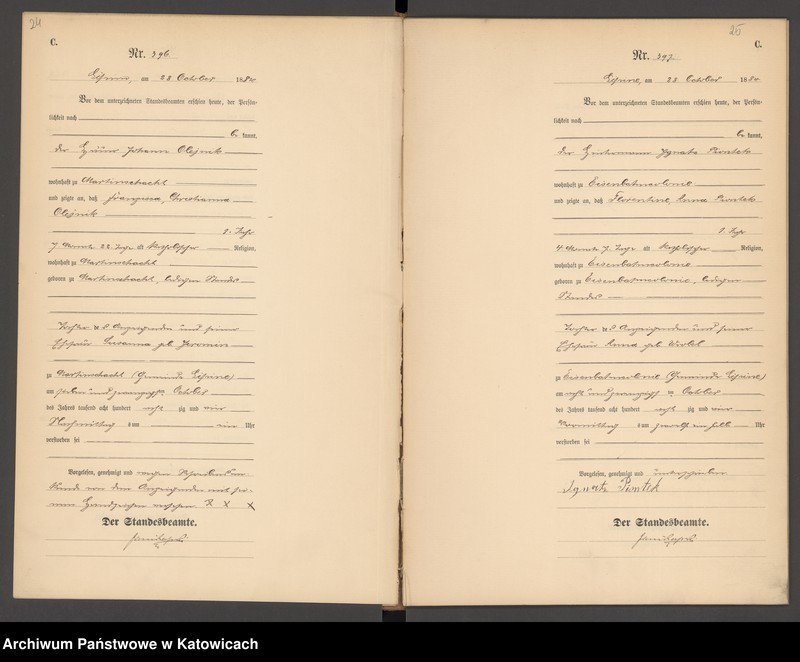 24
C.
Nr. 296
am 28 October 1880
Vor dem unterzeichneten Standesbeamten erschien heute, der Persön-
lichkeit nach
be kannt,
der Häuer Johann Olejnik
wohnhaft zu Martinschacht
und zeigte an, daß Franziska, Christianna
Olejnik
1. Jahr
7 Monate 22 Tage alt katholischer Religion,
wohnhaft zu Martinschacht
geboren zu Martinschacht, ledigen Standes
Tochter des Anzeigenden und seiner
Ehefrau Susanna geb Jeromin
zu Martinschacht (Gemeinde
am sieben und zwanzigsten October
des Jahres tausend acht hundert acht zig und
Nachmittag s um Uhr
verstorben sei
Vorgelesen, genehmigt und wegen Schreibens un-
kunde von dem Anzeigenden mit sei-
nem Handzeichen versehen X X X
Der Standesbeamte.
25
C.
Nr. 297
am 28 October 1880
Vor dem unterzeichneten Standesbeamten erschien heute, der Persön-
lichkeit nach
be kannt,
der Ignatz Piontek
wohnhaft zu Eisenbahncolonie
und zeigte an, daß Florentine, Anna Piontek
1. Jahr
4 Monate 7 Tage alt katholischer Religion,
wohnhaft zu Eisenbahncolonie
geboren zu Eisenbahncolonie, ledigen
Standes
Tochter des Anzeigenden und seiner
Ehefrau Anna geb
zu Eisenbahncolonie (Gemeinde
am acht und zwanzigsten October
des Jahres tausend acht hundert acht zig und
Vormittag s um zwoelf ein halb Uhr
verstorben sei
Vorgelesen, genehmigt und unterschrieben
Ignatz Piontek
Der Standesbeamte.
Archiwum Państwowe w Katowicach